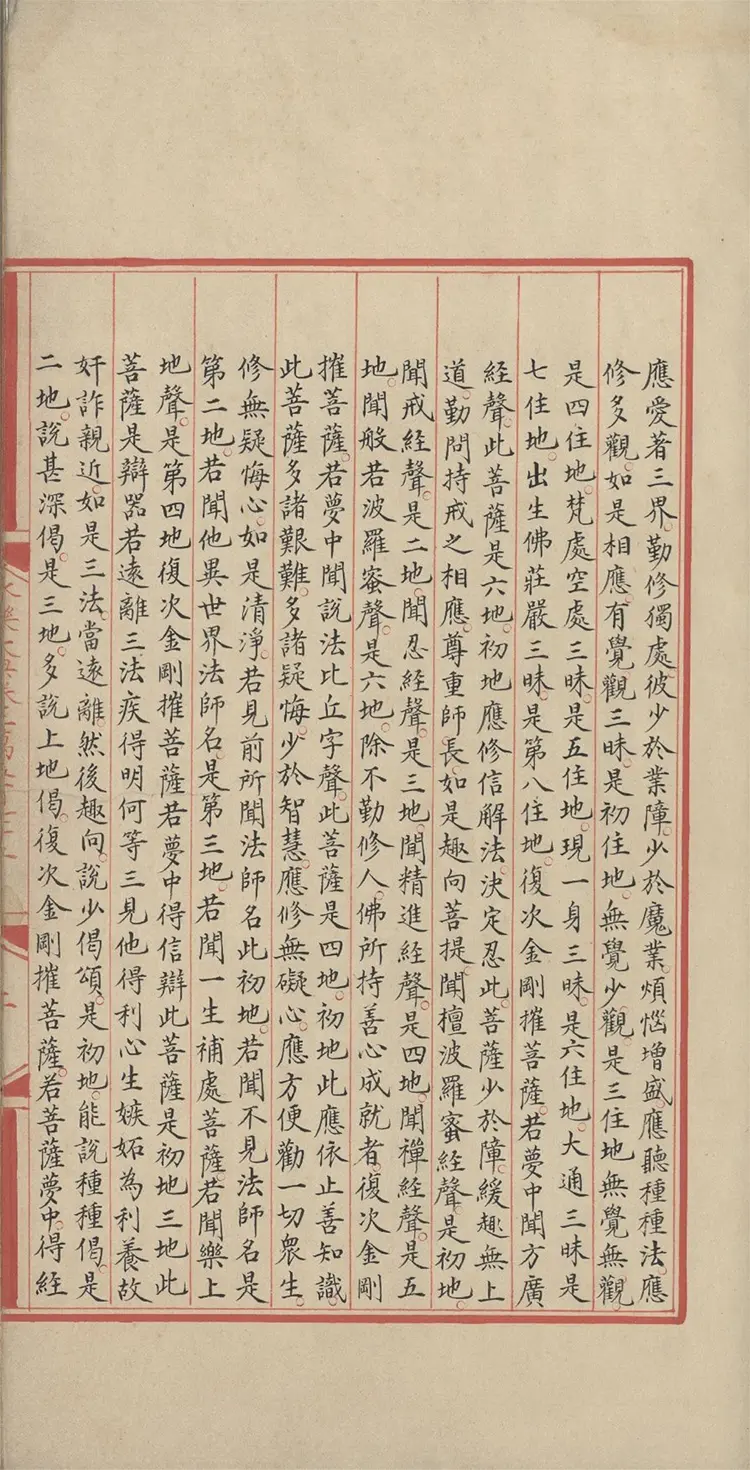 應愛著三界。勤修獨處。彼少於業障。少於魔業。煩惱增盛。應聽種種法。應
修多觀。如是相應。有覺觀三昧。是初住地。無覺少觀。是三住地無覺無觀。
是四住地。梵處空處三昧。是五住地。現一身三昧。是六住地。大通三昧是
七住地。出生佛莊嚴三昧。是第八住地。復次金剛摧菩薩。若夢中聞方廣
經聲。此菩薩是六地。初地應修信解法。決定忍此。菩薩少於障。緩趣無上
道。勤問持戒之相應。尊重師長。如是趣向菩提。聞檀波羅蜜經聲。是初地。
聞戒經聲。是二地。聞忍經聲。是三地。聞精進經聲。是四地。聞禪經聲。是五
地。聞般若波羅蜜聲。是六地。除不勤修人。佛所持善心成就者。復次金剛
摧菩薩。若夢中聞說法比丘字聲。此菩薩是四地。初地此應依止善知識。
此菩薩多諸艱難。多諸疑悔。少於智慧。應修無礙心。應方便勸一切衆生。
修無疑悔心。如是清淨。若見前所聞法師名此初地。若聞不見法師名是
第二地。若聞他異世界法師名。是第三地。若聞一生補處菩薩。若聞樂上
地聲。是第四地復次金剛摧菩薩若夢中得信辯此菩薩是初地三地此
菩薩是辯器若遠離三法疾得明何等三見他得利心生嫉妬為利養故
奸詐親近。如是三法。當遠離然後趣向。說少偈頌。是初地。能說種種偈。是
二地。說甚深偈。是三地。多說上地偈。復次金剛摧菩薩。若菩薩夢中。得經